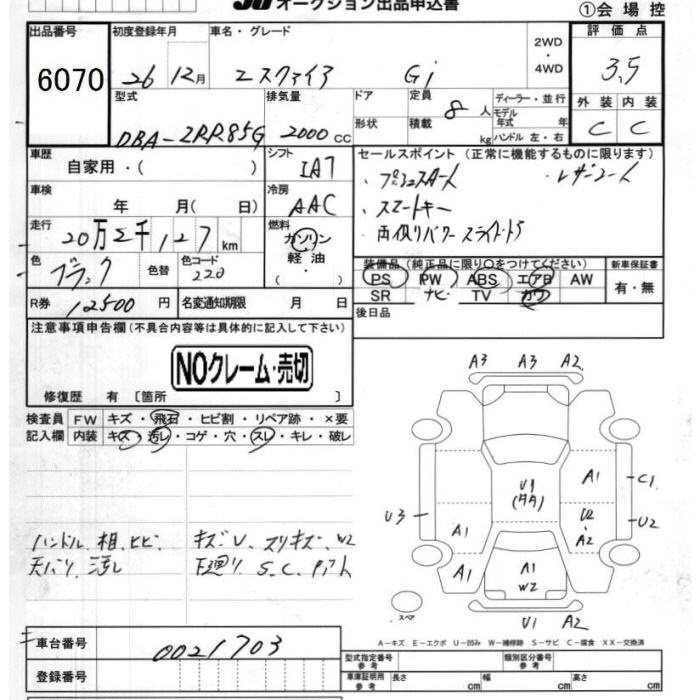 JU オークション出品申込書
①会場控
出品番号 6070
初度登録年月 26 12月
車名・グレード エスクァイア Gi
2WD・4WD
評価点 3,5
型式 DBA-ZRR85G
排気量 2000 cc
ドア 形状
定員 8人 積載 kg
ディーラー・並行
モデル年式 年
ハンドル 左・右
外装 内装
C C
車歴 自家用・( )
シフト IA7
セールスポイント (正常に機能するものに限ります)
・プッシュスタート ・レザーシート
・スマートキー
・両側パワースライドドア
車検 年 月( 日)
冷房 AAC
走行 20万2千127km
燃料 ガソリン 軽油
色 ブラック 色替
色コード 220
装備品 (純正品に限り○をつけてください)
PS PW ABS エアB AW
SR ナビ TV カワ
新車保証書 有・無
R券 12500円
名変通知期限 月 日
後日品
注意事項申告欄(不具合内容等は具体的に記入して下さい)
NOクレーム・売切
修復歴 有 〔箇所 〕
検査員記入欄
FW キズ・飛石・ヒビ割・リペア跡・×要
内装 キズ・汚レ・コゲ・穴・スレ・キレ・破レ
ハンドル 相、ヒビ キズ・U、スリキズ、W2
天バリ 汚レ 下廻り S、C、
A3 A3 A2
U1
A1 C1
U3 U2 U2
A2
A1
A1 A1
W2
スペア
U1 A2
A－キズ E－エクボ U－凹み W－補修跡 S－サビ C－腐食 XX－交換済
車台番号 0021703
登録番号
型式指定番号参考 類別区分番号参考
車庫証明用参考 長さ cm 幅 cm 高さ cm